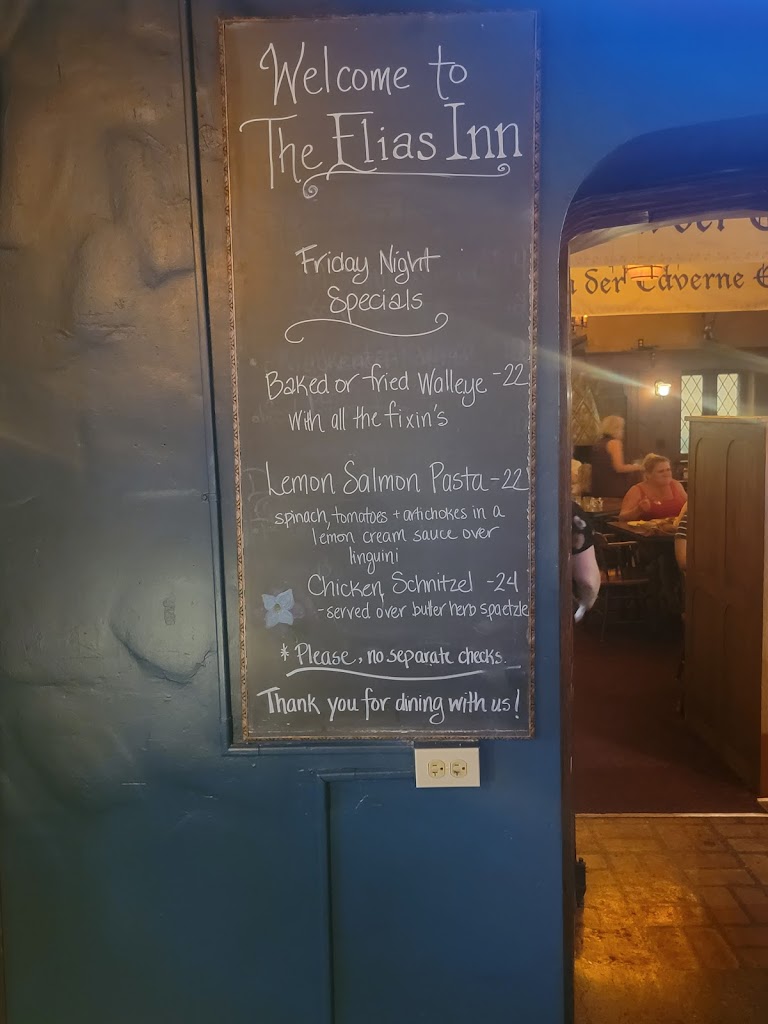 Welcome to
The Elias Inn
Friday Night
Specials
Baked or fried Walleye -22
with all the fixin's
Lemon Salmon Pasta -22
spinach, tomatoes + artichokes in a
lemon cream sauce over
linguini
Chicken Schnitzel -24
-served over butter herb spaetzle
* Please, no separate checks.
Thank you for dining with us!
der Taverne